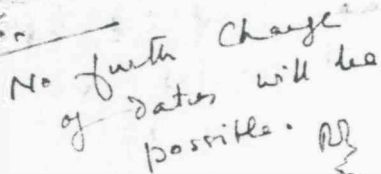 No further change
of dates will be
possible.